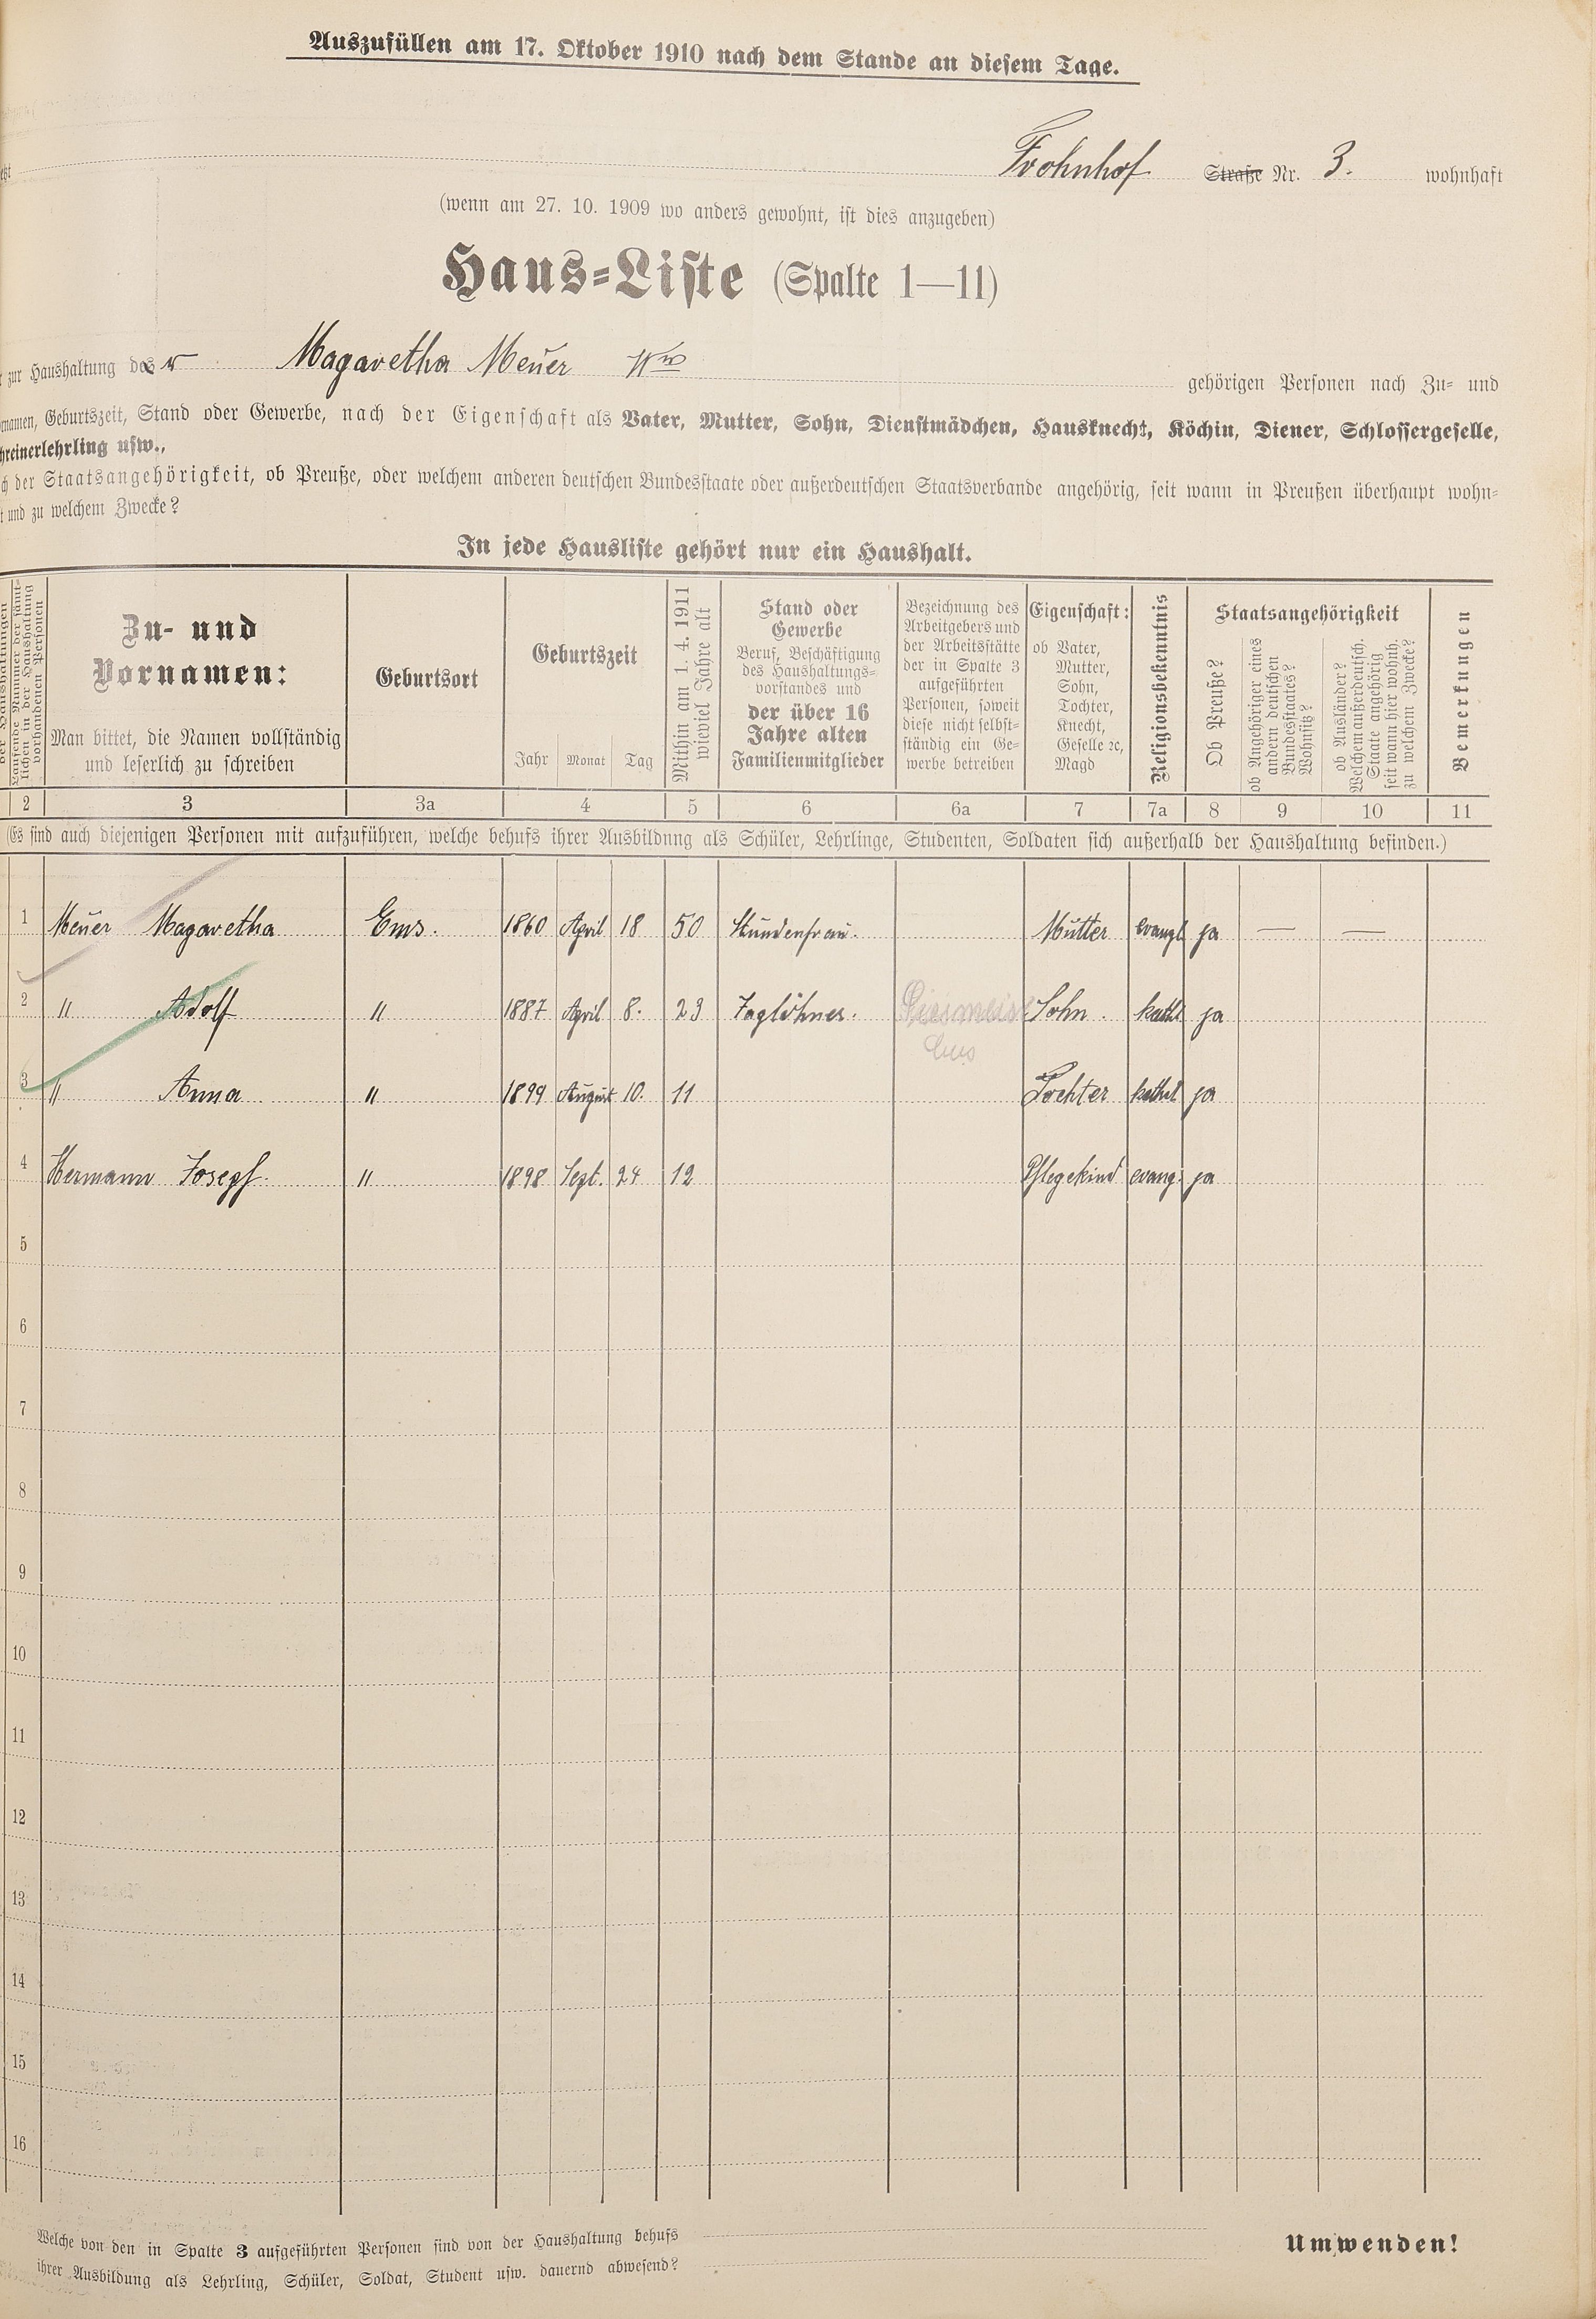 Auszufüllen am 17. Oktober 1910 nach dem Stande an diesem Tage.
Frohnhof Straße Nr. 3. wohnhaft
(wenn am 27. 10. 1909 wo anders gewohnt, ist dies anzugeben)
Haus-Liste (Spalte 1—11)
zur Haushaltung des r Magaretha Meuer Ww gehörigen Personen nach Zu- und
Geburtszeit, Stand oder Gewerbe, nach der Eigenschaft als Vater, Mutter, Sohn, Dienstmädchen, Hausknecht, Köchin, Diener, Schlossergeselle,
reinerlehrling usw.,
der Staatsangehörigkeit, ob Preuße, oder welchem anderen deutschen Bundesstaate oder außerdeutschen Staatsverbande angehörig, seit wann in Preußen überhaupt wohn-
und zu welchem Zwecke?
In jede Hausliste gehört nur ein Haushalt.
der Haushaltungen
Laufende Nummer der sämt-
lichen in der Haushaltung
vorhandenen Personen
Zu- und
Vornamen:
Man bittet, die Namen vollständig
und leserlich zu schreiben
Geburtsort
Geburtszeit
Jahr Monat Tag
Mithin am 1. 4. 1911
wieviel Jahre alt
Stand oder
Gewerbe
Beruf, Beschäftigung
des Haushaltungs-
vorstandes und
der über 16
Jahre alten
Familienmitglieder
Bezeichnung des
Arbeitgebers und
der Arbeitsstätte
der in Spalte 3
aufgeführten
Personen, soweit
diese nicht selbst-
ständig ein Ge-
werbe betreiben
Eigenschaft:
ob Vater,
Mutter,
Sohn,
Tochter,
Knecht,
Geselle ꝛc,
Magd
Religionsbekenntnis
Staatsangehörigkeit
Ob Preuße?
ob Angehöriger eines
andern deutschen
Bundesstaates?
Wohnsitz?
ob Ausländer?
Welchem außerdeutsch.
Staate angehörig
seit wann hier wohnh.
zu welchem Zwecke?
Bemerkungen
2 3 3a 4 5 6 6a 7 7a 8 9 10 11
(Es sind auch diejenigen Personen mit aufzuführen, welche behufs ihrer Ausbildung als Schüler, Lehrlinge, Studenten, Soldaten sich außerhalb der Haushaltung befinden.)
1 Meuer Magaretha Ems. 1860 April 18 50 Stundenfrau. Mutter evangl ja — —
2 " Adolf " 1887 April 8. 23 Taglöhner. Sohn. kathl ja
Ems
3 " Anna " 1899 August 10. 11 Tochter kathol ja
4 Hermann Josepf. " 1898 Sept. 24 12 Pflegekind evang. ja
5
6
7
8
9
10
11
12
13
14
15
16
Welche von den in Spalte 3 aufgeführten Personen sind von der Haushaltung behufs
ihrer Ausbildung als Lehrling, Schüler, Soldat, Student usw. dauernd abwesend?
Umwenden!